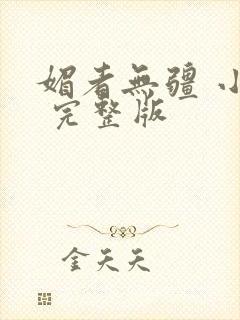 媚者無疆 小
完整版
金天天